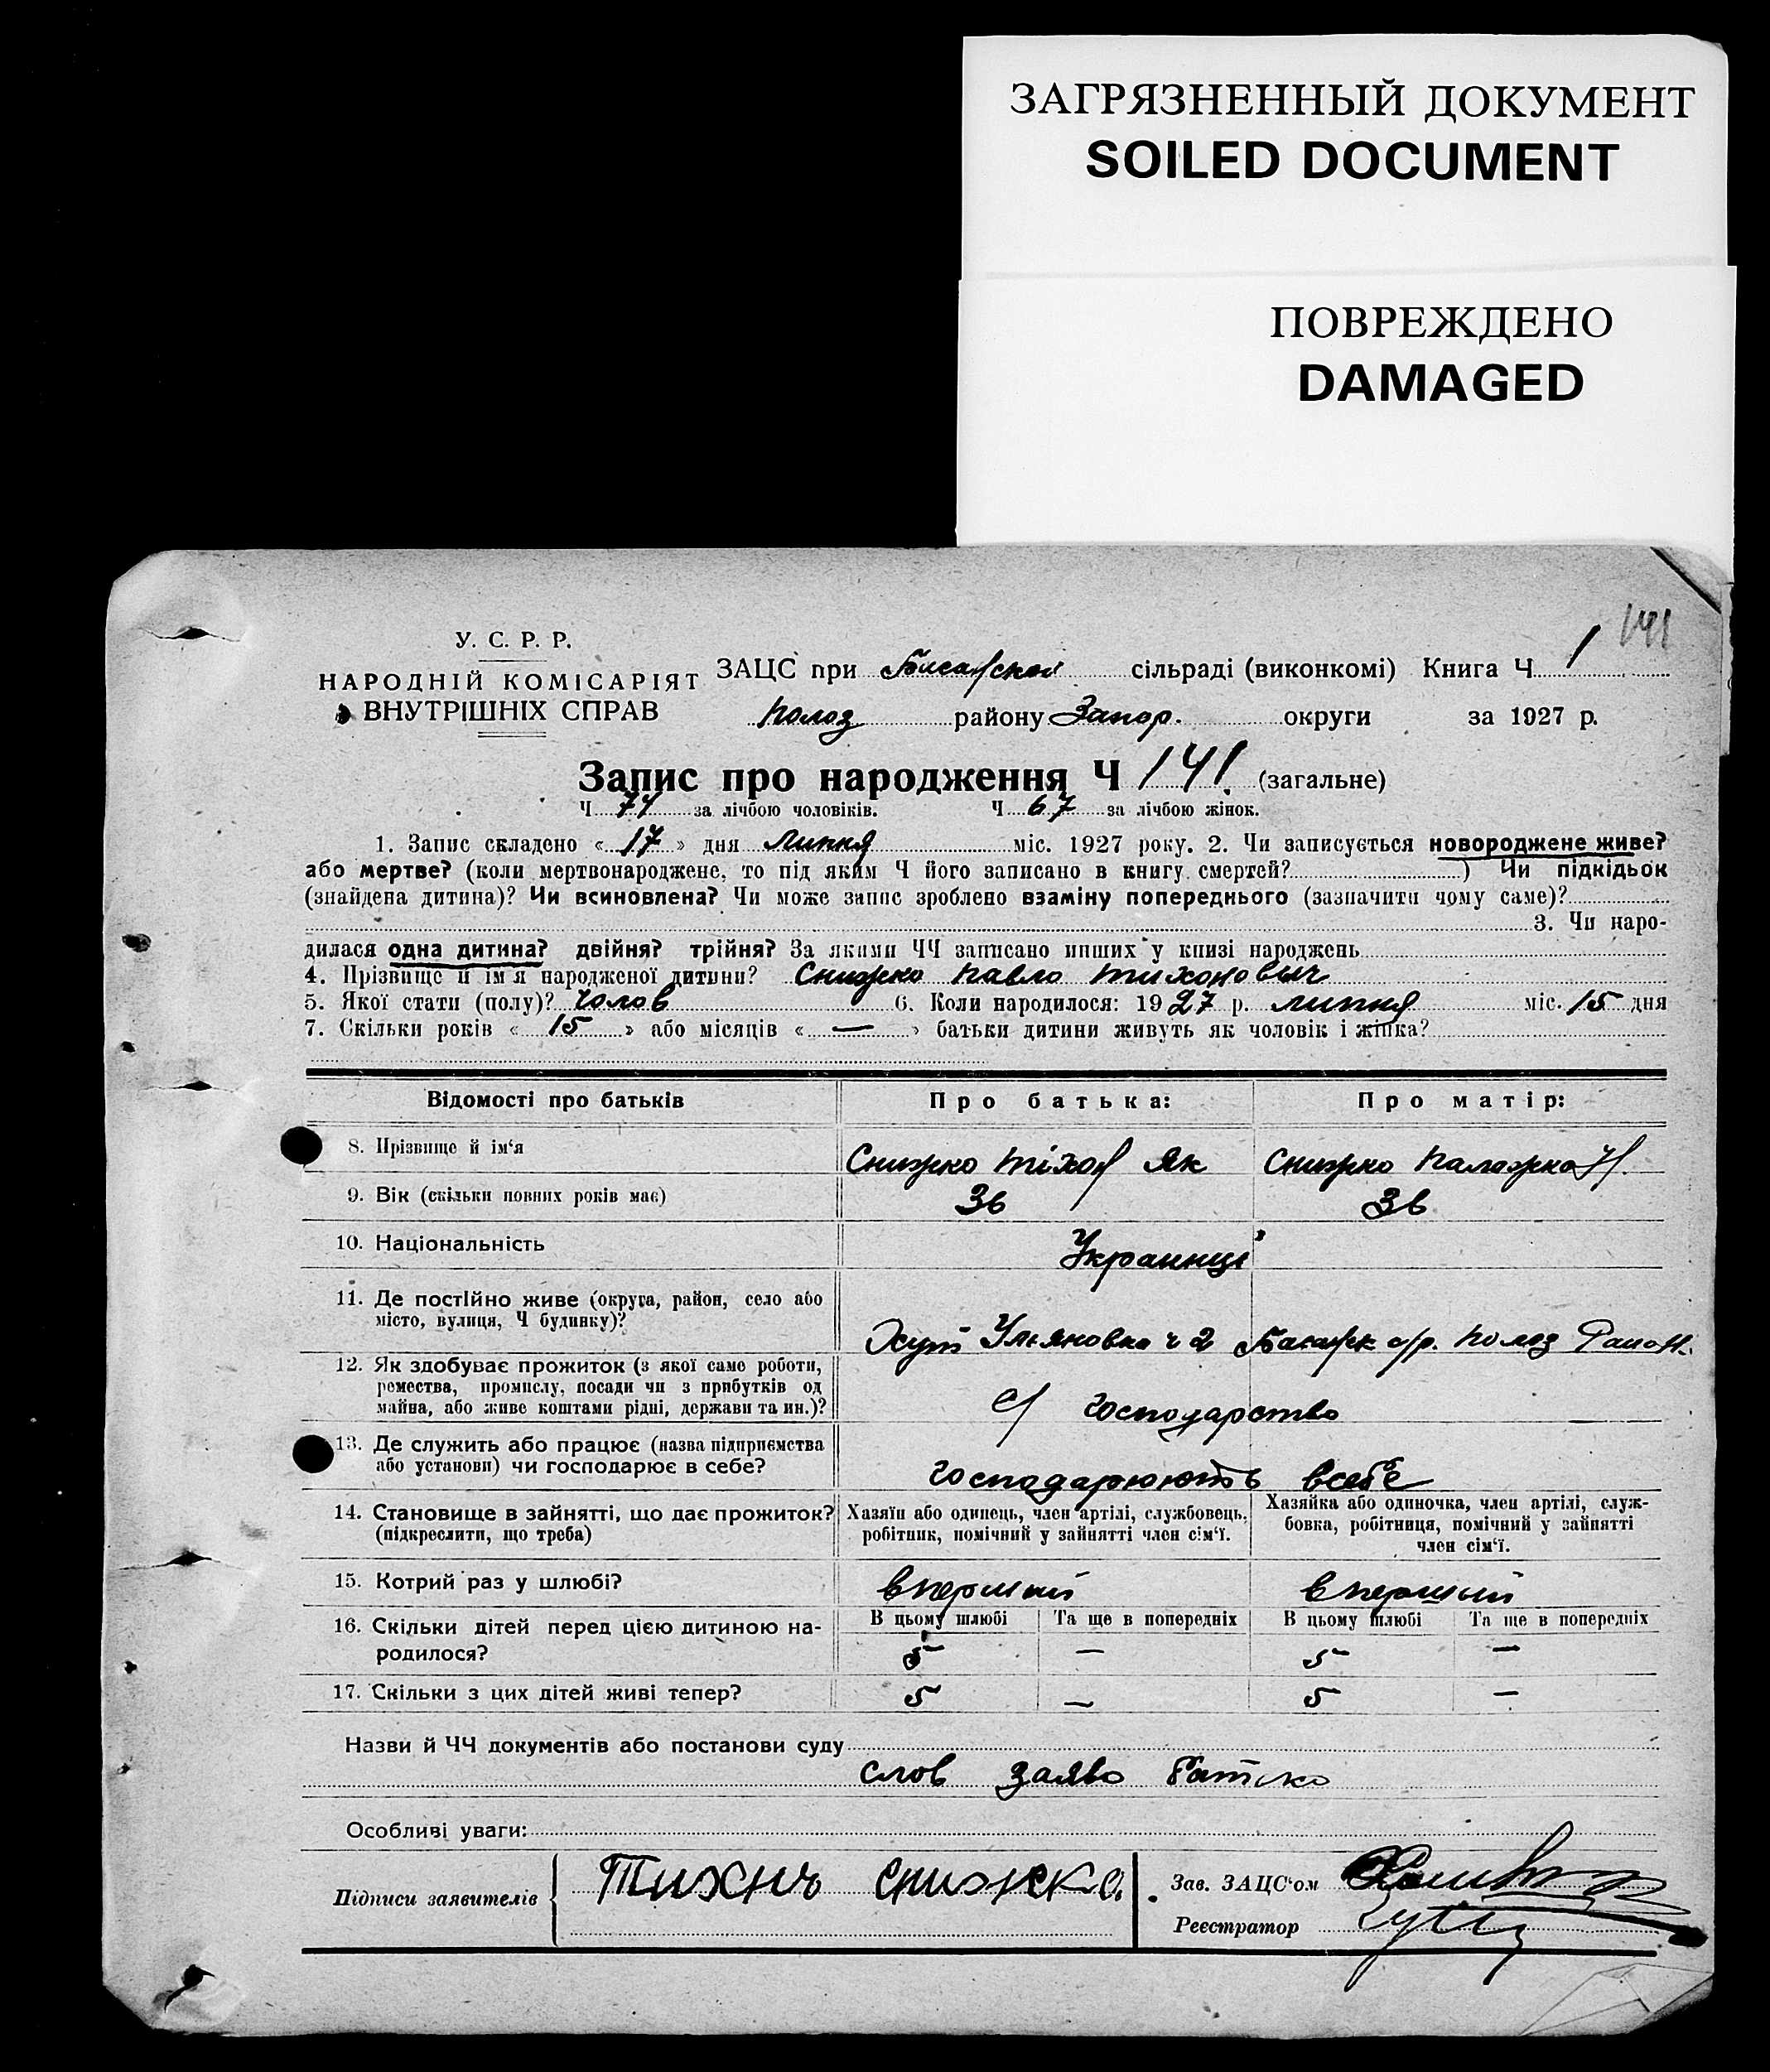 ЗАГРЯЗНЕННЫЙ ДОКУМЕНТ
SOILED DOCUMENT
ПОВРЕЖДЕНО
DAMAGED
141
У. С. Р. Р.
НАРОДНІЙ КОМІСАРІЯТ
ВНУТРІШНІХ СПРАВ
ЗАЦС при сільраді (виконкомі) Книга Ч. 1
Полоз району Запор. округи за 1927 р.
Запис про народження Ч 141. (загальне)
Ч 74 за лічбою чоловіків. Ч 67 за лічбою жінок.
1. Запис складено « 17 » дня Липня міс. 1927 року. 2. Чи записується новороджене живе?
або мертве? (коли мертвонароджене, то під яким Ч його записано в книгу смертей? ) Чи підкідьок
(знайдена дитина)? Чи всиновлена? Чи може запис зроблено взаміну попереднього (зазначити чому саме)?
3. Чи наро-
дилася одна дитина? двійня? трійня? За якими ЧЧ записано инших у книзі народжень
4. Прізвище й ім'я народженої дитини? Снижко Павло Тихоновыч
5. Якої стати (полу)? Чолов 6. Коли народилося: 1927 р. липня міс. 15 дня
7. Скільки років « 15 » або місяців « — » батьки дитини живуть як чоловік і жінка?
Відомості про батьків Про батька: Про матір:
8. Прізвище й ім'я Снижко Тіхон Як Снижко Палажка
9. Вік (скільки повних років має) 36 36
10. Національність Украинці
11. Де постійно живе (округа, район, село або
місто, вулиця, Ч будинку)?
Хут Ульяновка ч 2 с/р. Полоз
12. Як здобуває прожиток (з якої саме роботи,
ремества, промислу, посади чи з прибутків од
майна, або живе коштами рідні, держави та ин.)?
с/ господарство
13. Де служить або працює (назва підприємства
або установи) чи господарює в себе?
господарюють всебе
14. Становище в зайнятті, що дає прожиток? Хазяїн або одинець, член артілі, службовець, Хазяйка або одиночка, член артілі, служ-
(підкреслити, що треба) робітник, помічний у зайнятті член сім'ї. бовка, робітниця, помічний у зайнятті
член сім'ї.
15. Котрий раз у шлюбі? вперший вперший
16. Скільки дітей перед цією дитиною на- В цьому шлюбі Та ще в попередніх В цьому шлюбі Та ще в попередніх
родилося? 5 — 5 —
17. Скільки з цих дітей живі тепер? 5 — 5 —
Назви й ЧЧ документів або постанови суду
слов заява батько
Особливі уваги:
Підписи заявителів Тихнъ снижска
Зав. ЗАЦС'ом
Реєстратор